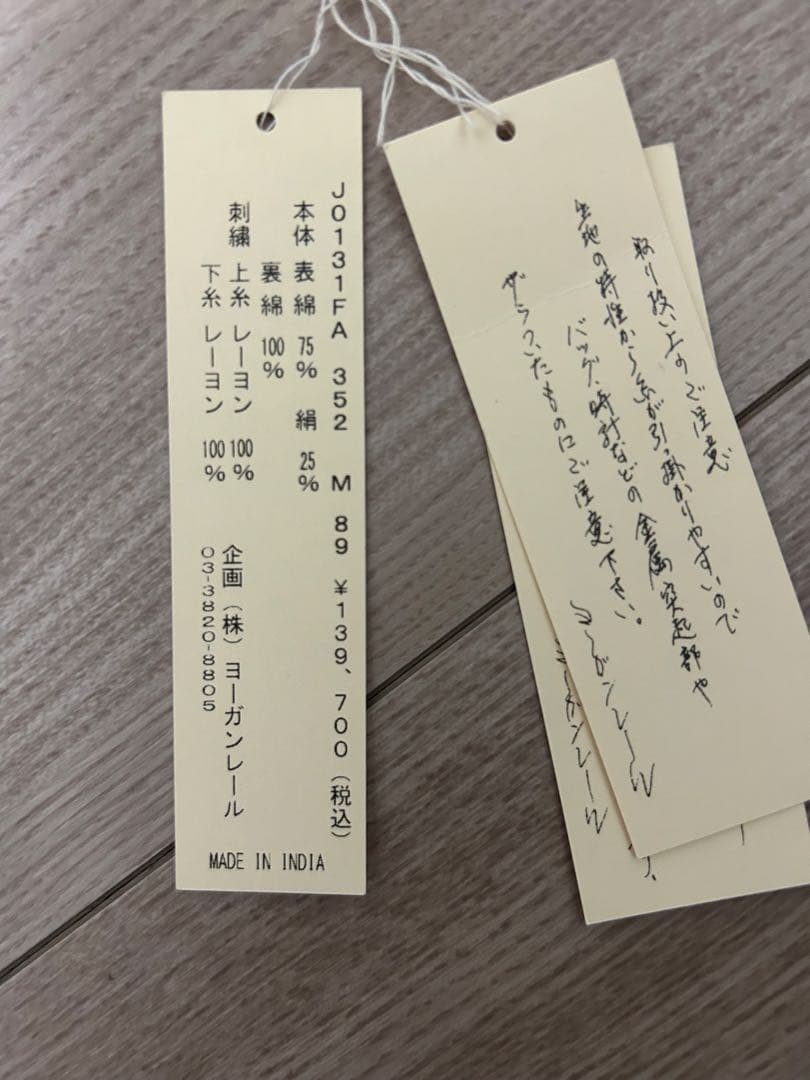 J0131FA 352 M 89 ¥139、700（税込）
本体 表 綿 75% 絹 25%
裏 綿 100%
刺繍 上糸 レーヨン 100%
下糸 レーヨン 100%
企画（株）ヨーガンレール
03-3820-8805
MADE IN INDIA
取り扱い上のご注意
生地の特性から糸が引っ掛かりやすいので
バッグ、時計などの金属、突起部や
ザラついたものにご注意下さい。
ヨーガンレール
ヨーガンレール